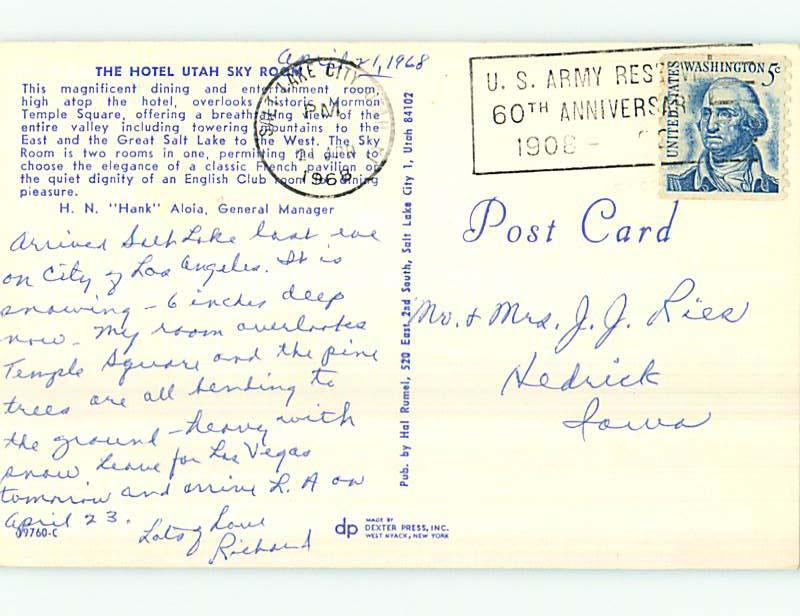 April 21, 1968
THE HOTEL UTAH SKY ROOM
This magnificent dining and entertainment room,
high atop the hotel, overlooks historic Mormon
Temple Square, offering a breathtaking view of the
entire valley including towering mountains to the
East and the Great Salt Lake to the West. The Sky
Room is two rooms in one, permitting the guest to
choose the elegance of a classic French pavilion or
the quiet dignity of an English Club room for dining
pleasure.
H. N. "Hank" Aloia, General Manager
Arrived Salt Lake last eve
on City of Los Angeles. It is
snowing - 6 inches deep
now. My room overlooks
Temple Square and the pine
trees are all bending to
the ground - heavy with
snow. Leave for Las Vegas
tomorrow and arrive L.A on
April 23.
Lots of Love
Richard
09760-C
Pub. by Hal Rumel, 520 East 2nd South, Salt Lake City 1, Utah 84102
dp MADE BY
DEXTER PRESS, INC.
WEST NYACK, NEW YORK
SALT LAKE CITY
PM
1968
U. S. ARMY RES
60TH ANNIVERSAR
1908 -
UNITED STATES
WASHINGTON 5c
Post Card
Mr. & Mrs. J. J. Ries
Hedrick
Iowa